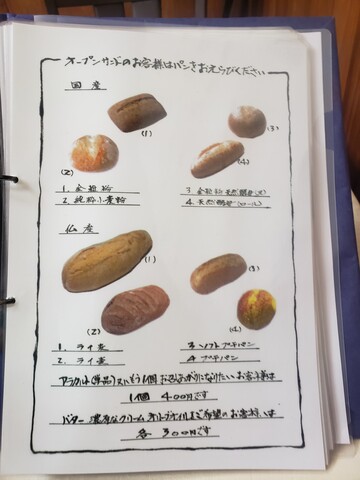 オープンサンドのお客様はパンをお えらびください
国産
(1)
(3)
(2)
(4)
1. 全粒粉
3 全粒粉 天然酵母
2. 純粋小麦粉
4. 天然酵母(ロール)
仏産
(1)
(3)
(2)
(4)
1. ライ麦
3 ソフトプチパン
2. ライ麦
4 プチパン
アラカルト(単品)又はもう1個 お召しあがりになりたいお客様は
1個 400円です
バター 濃厚なクリーム オリーブオイルをご希望のお客様は
各 300円です